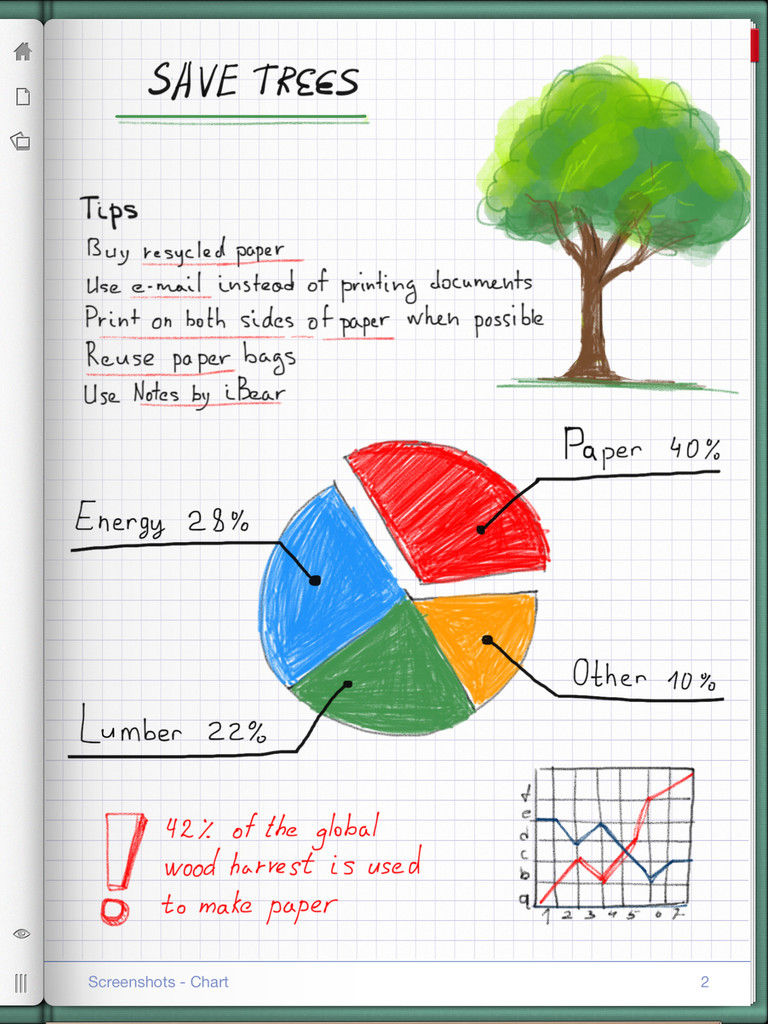 SAVE TREES
Tips
Buy resycled paper
Use e-mail instead of printing documents
Print on both sides of paper when possible
Reuse paper bags
Use Notes by iBear
Paper 40%
Energy 28%
Other 10%
Lumber 22%
42% of the global
wood harvest is used
to make paper
f
e
d
c
b
a
1 2 3 4 5 6 7
Screenshots - Chart 2